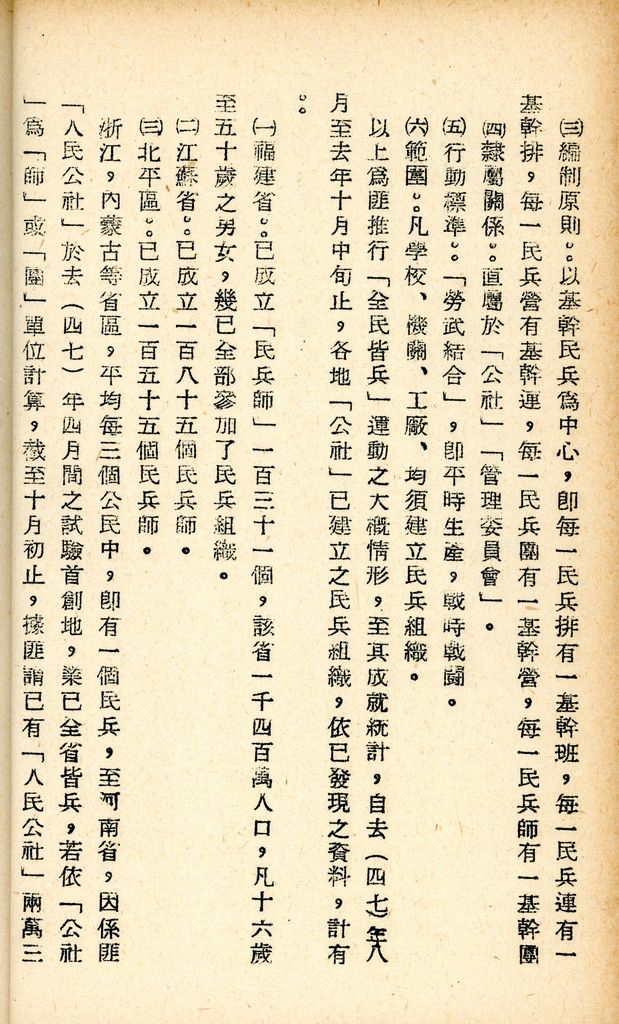 ㈢編制原則：以基幹民兵爲中心，卽每一民兵排有一基幹班，每一民兵連有一
基幹排，每一民兵營有基幹連，每一民兵團有一基幹營，每一民兵師有一基幹團
㈣隸屬關係：直屬於「公社」「管理委員會」。
㈤行動標準：「勞武結合」，卽平時生產，戰時戰鬪。
㈥範圍：凡學校、機關、工廠、均須建立民兵組織。
以上爲匪推行「全民皆兵」運動之大槪情形，至其成就統計，自去（四七）年八
月至去年十月中旬止，各地「公社」已建立之民兵組織，依已發現之資料，計有
：
㈠福建省：已成立「民兵師」一百三十一個，該省一千四百萬人口，凡十六歲
至五十歲之男女，幾已全部參加了民兵組織。
㈡江蘇省：已成立一百八十五個民兵師。
㈢北平區：已成立一百五十五個民兵師。
浙江，內蒙古等省區，平均每三個公民中，卽有一個民兵，至河南省，因係匪
「人民公社」於去（四七）年四月間之試驗首創地，業已全省皆兵，若依「公社
」爲「師」或「團」單位計算，截至十月初止，據匪謂已有「人民公社」兩萬三